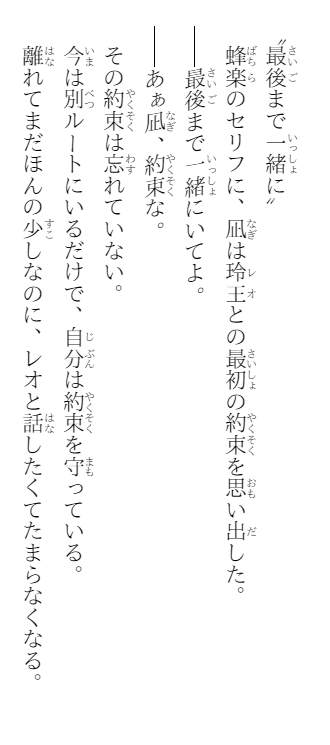 〝最後まで一緒に〟
蜂楽のセリフに、凪は玲王との最初の約束を思い出した。
――最後まで一緒にいてよ。
――あぁ凪、約束な。
その約束は忘れていない。
今は別ルートにいるだけで、自分は約束を守っている。
離れてまだほんの少しなのに、レオと話したくてたまらなくなる。